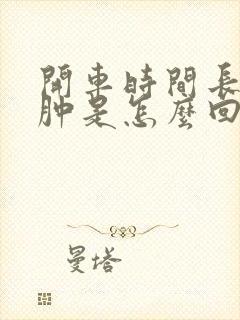 開車時間長
肿是怎麼回
曼塔